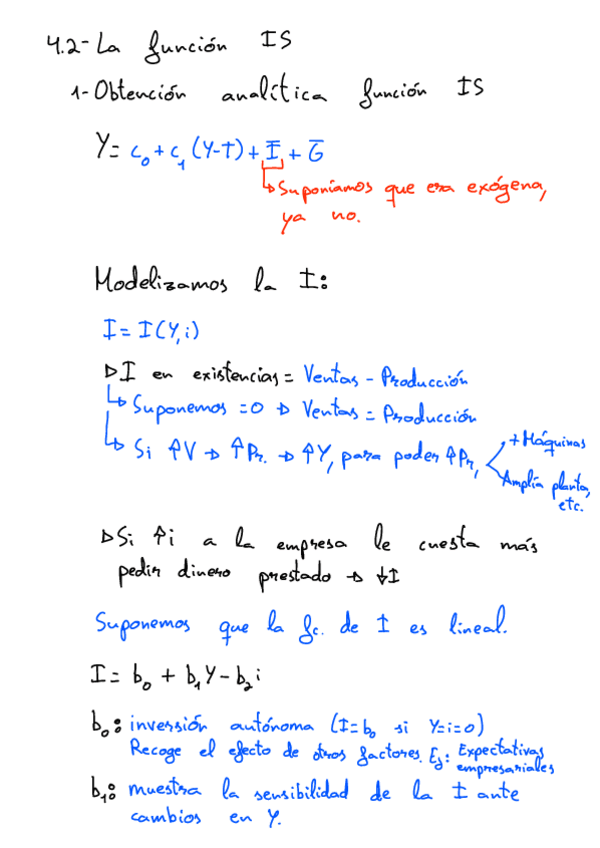 4.2- La función IS
1- Obtención analítica función IS
Y = c₀ + c₁ (Y-T) + Ī + Ḡ
↳ Suponíamos que era exógena,
ya no.
Modelizamos la I:
I = I(Y,i)
▷ I en existencias = Ventas - Producción
↳ Suponemos = 0 → Ventas = Producción
↳ Si ↑V → ↑Pr. → ↑Y, para poder ↑Pr,
+ Máquinas
Amplía planta,
etc.
▷ Si ↑i a la empresa le cuesta más
pedir dinero prestado → ↓I
Suponemos que la fc. de I es lineal.
I = b₀ + b₁Y - b₂i
b₀: inversión autónoma (I=b₀ si Y=i=0)
Recoge el efecto de otros factores. Ej: Expectativas
empresariales
b₁: muestra la sensibilidad de la I ante
cambios en Y.